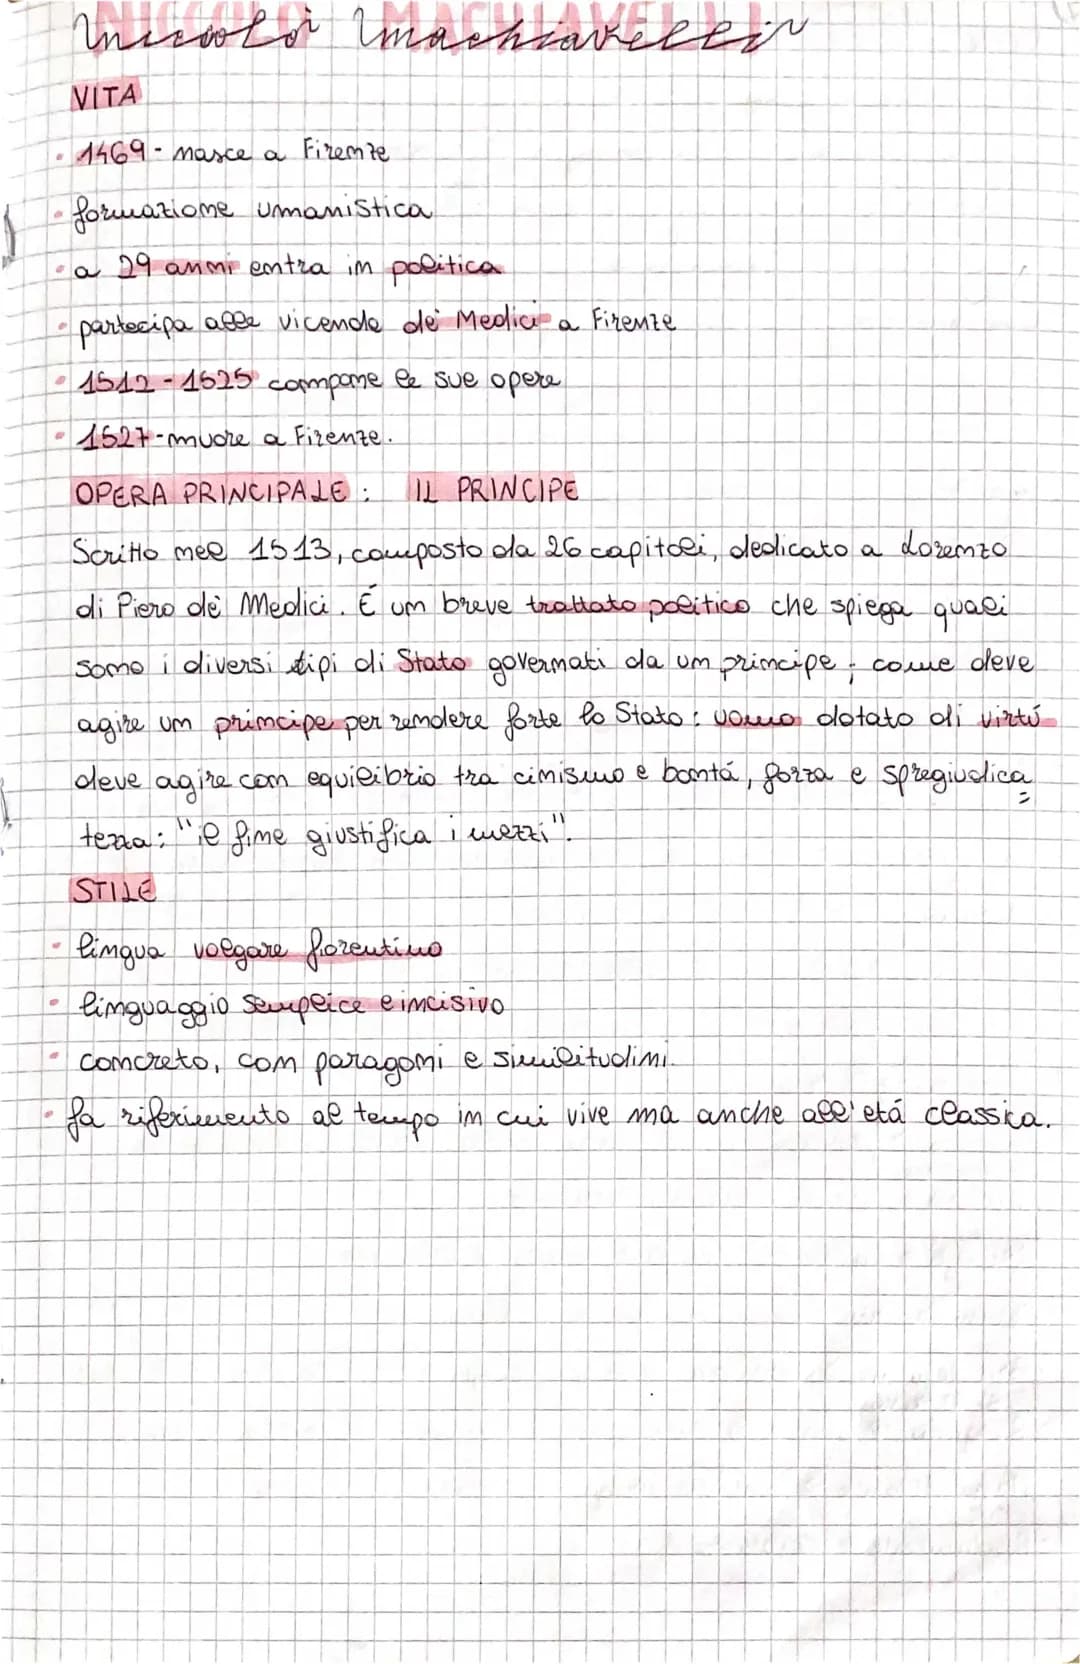 Niccolò Machiavelli
VITA
• 1469 - nasce a Firenze
• formazione umanistica
• a 29 anni entra in politica
• partecipa alle vicende de' Medici a Firenze
• 1512 - 1525 compone le sue opere
• 1527 - muore a Firenze.
OPERA PRINCIPALE : IL PRINCIPE
Scritto nel 1513, composto da 26 capitoli, dedicato a Lorenzo
di Piero de' Medici. É un breve trattato politico che spiega quali
sono i diversi tipi di Stato governati da un principe; come deve
agire un principe per rendere forte lo Stato : uomo dotato di virtú
deve agire con equilibrio tra cinismo e bontá, forza e spregiudica=
tezza: "il fine giustifica i mezzi".
STILE
• lingua volgare fiorentino
• linguaggio semplice e incisivo
• concreto, con paragoni e similitudini.
• fa riferimento al tempo in cui vive ma anche all'etá classica.